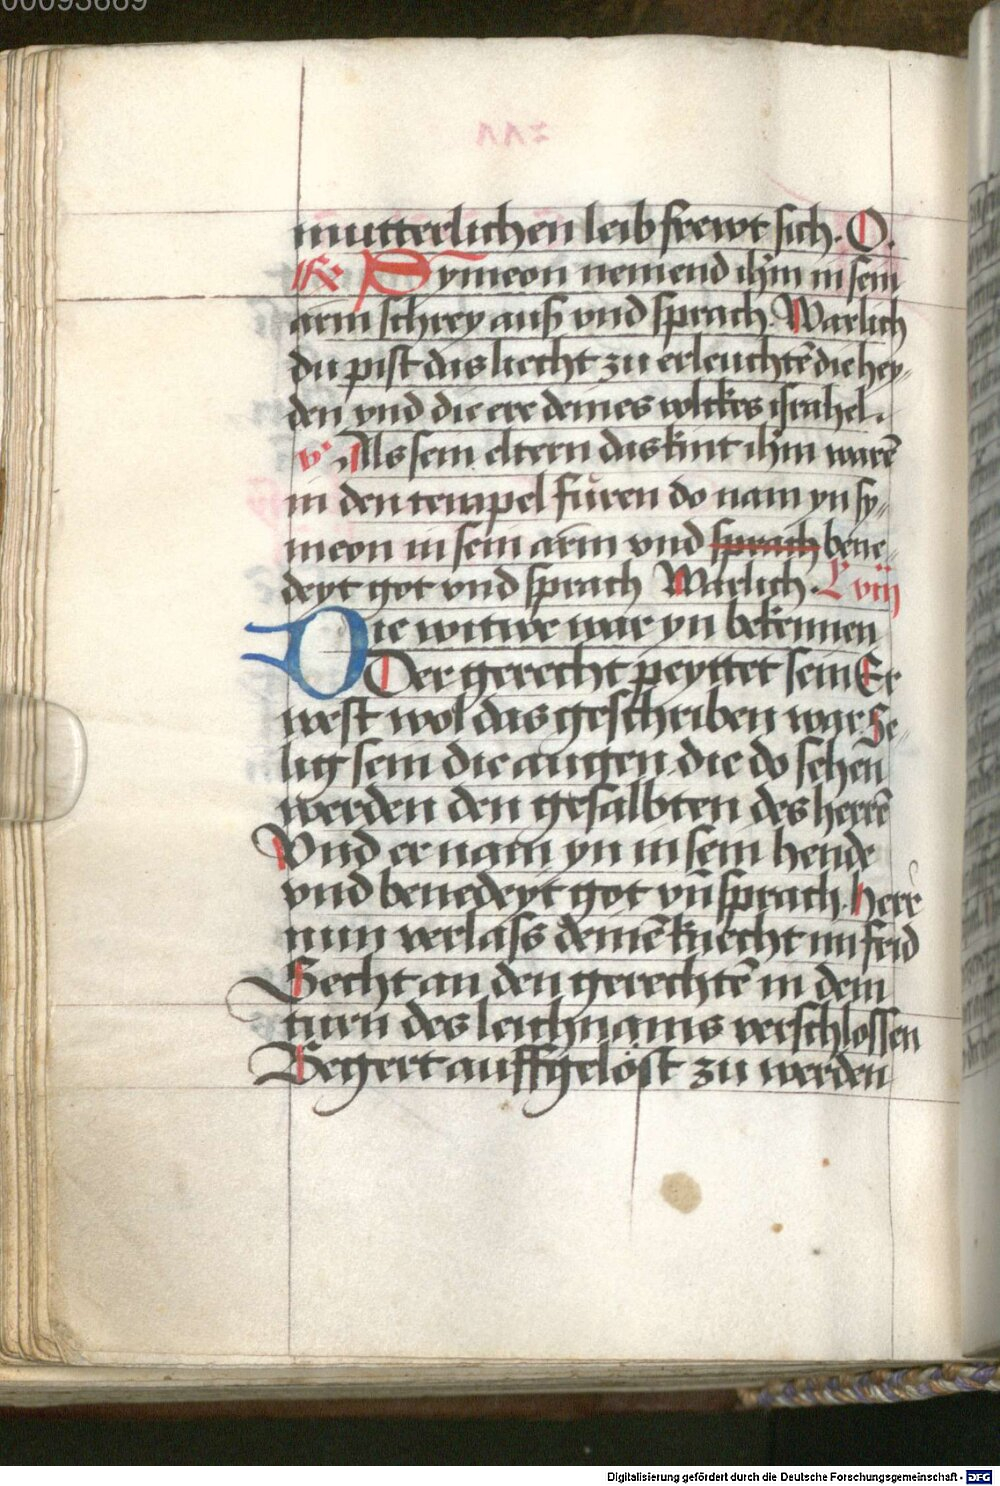 00093669
mutterlichen leib frewt sich. O.
Re Symeon nemend ihm in sein
arm schrey auß vnd sprach. Warlich
du pist das liecht zu erleuchtē die hey„
den vnd die ere deines volckes israhel.
v Als sein eltern das kint ihm warē
in den tempel füren do nam yn sy„
meon in sein arm vnd sprach bene„
deyt got vnd sprach Warlich. L viij
Die witwe war yn bekennen
Der gerecht peyttet sein Er
west wol das geschriben war Se„
lig sein die augen die do sehen
werden den gesalbten des herrē
Vnd er nam yn in sein hende
vnd benedeyt got vn̄ sprach. herr
nun verlass deinē knecht im frid
Secht an den gerechtē in dem
turen des leichnams verschlossen
Begert auffgelöst zu werden
Digitalisierung gefördert durch die Deutsche Forschungsgemeinschaft - DFG